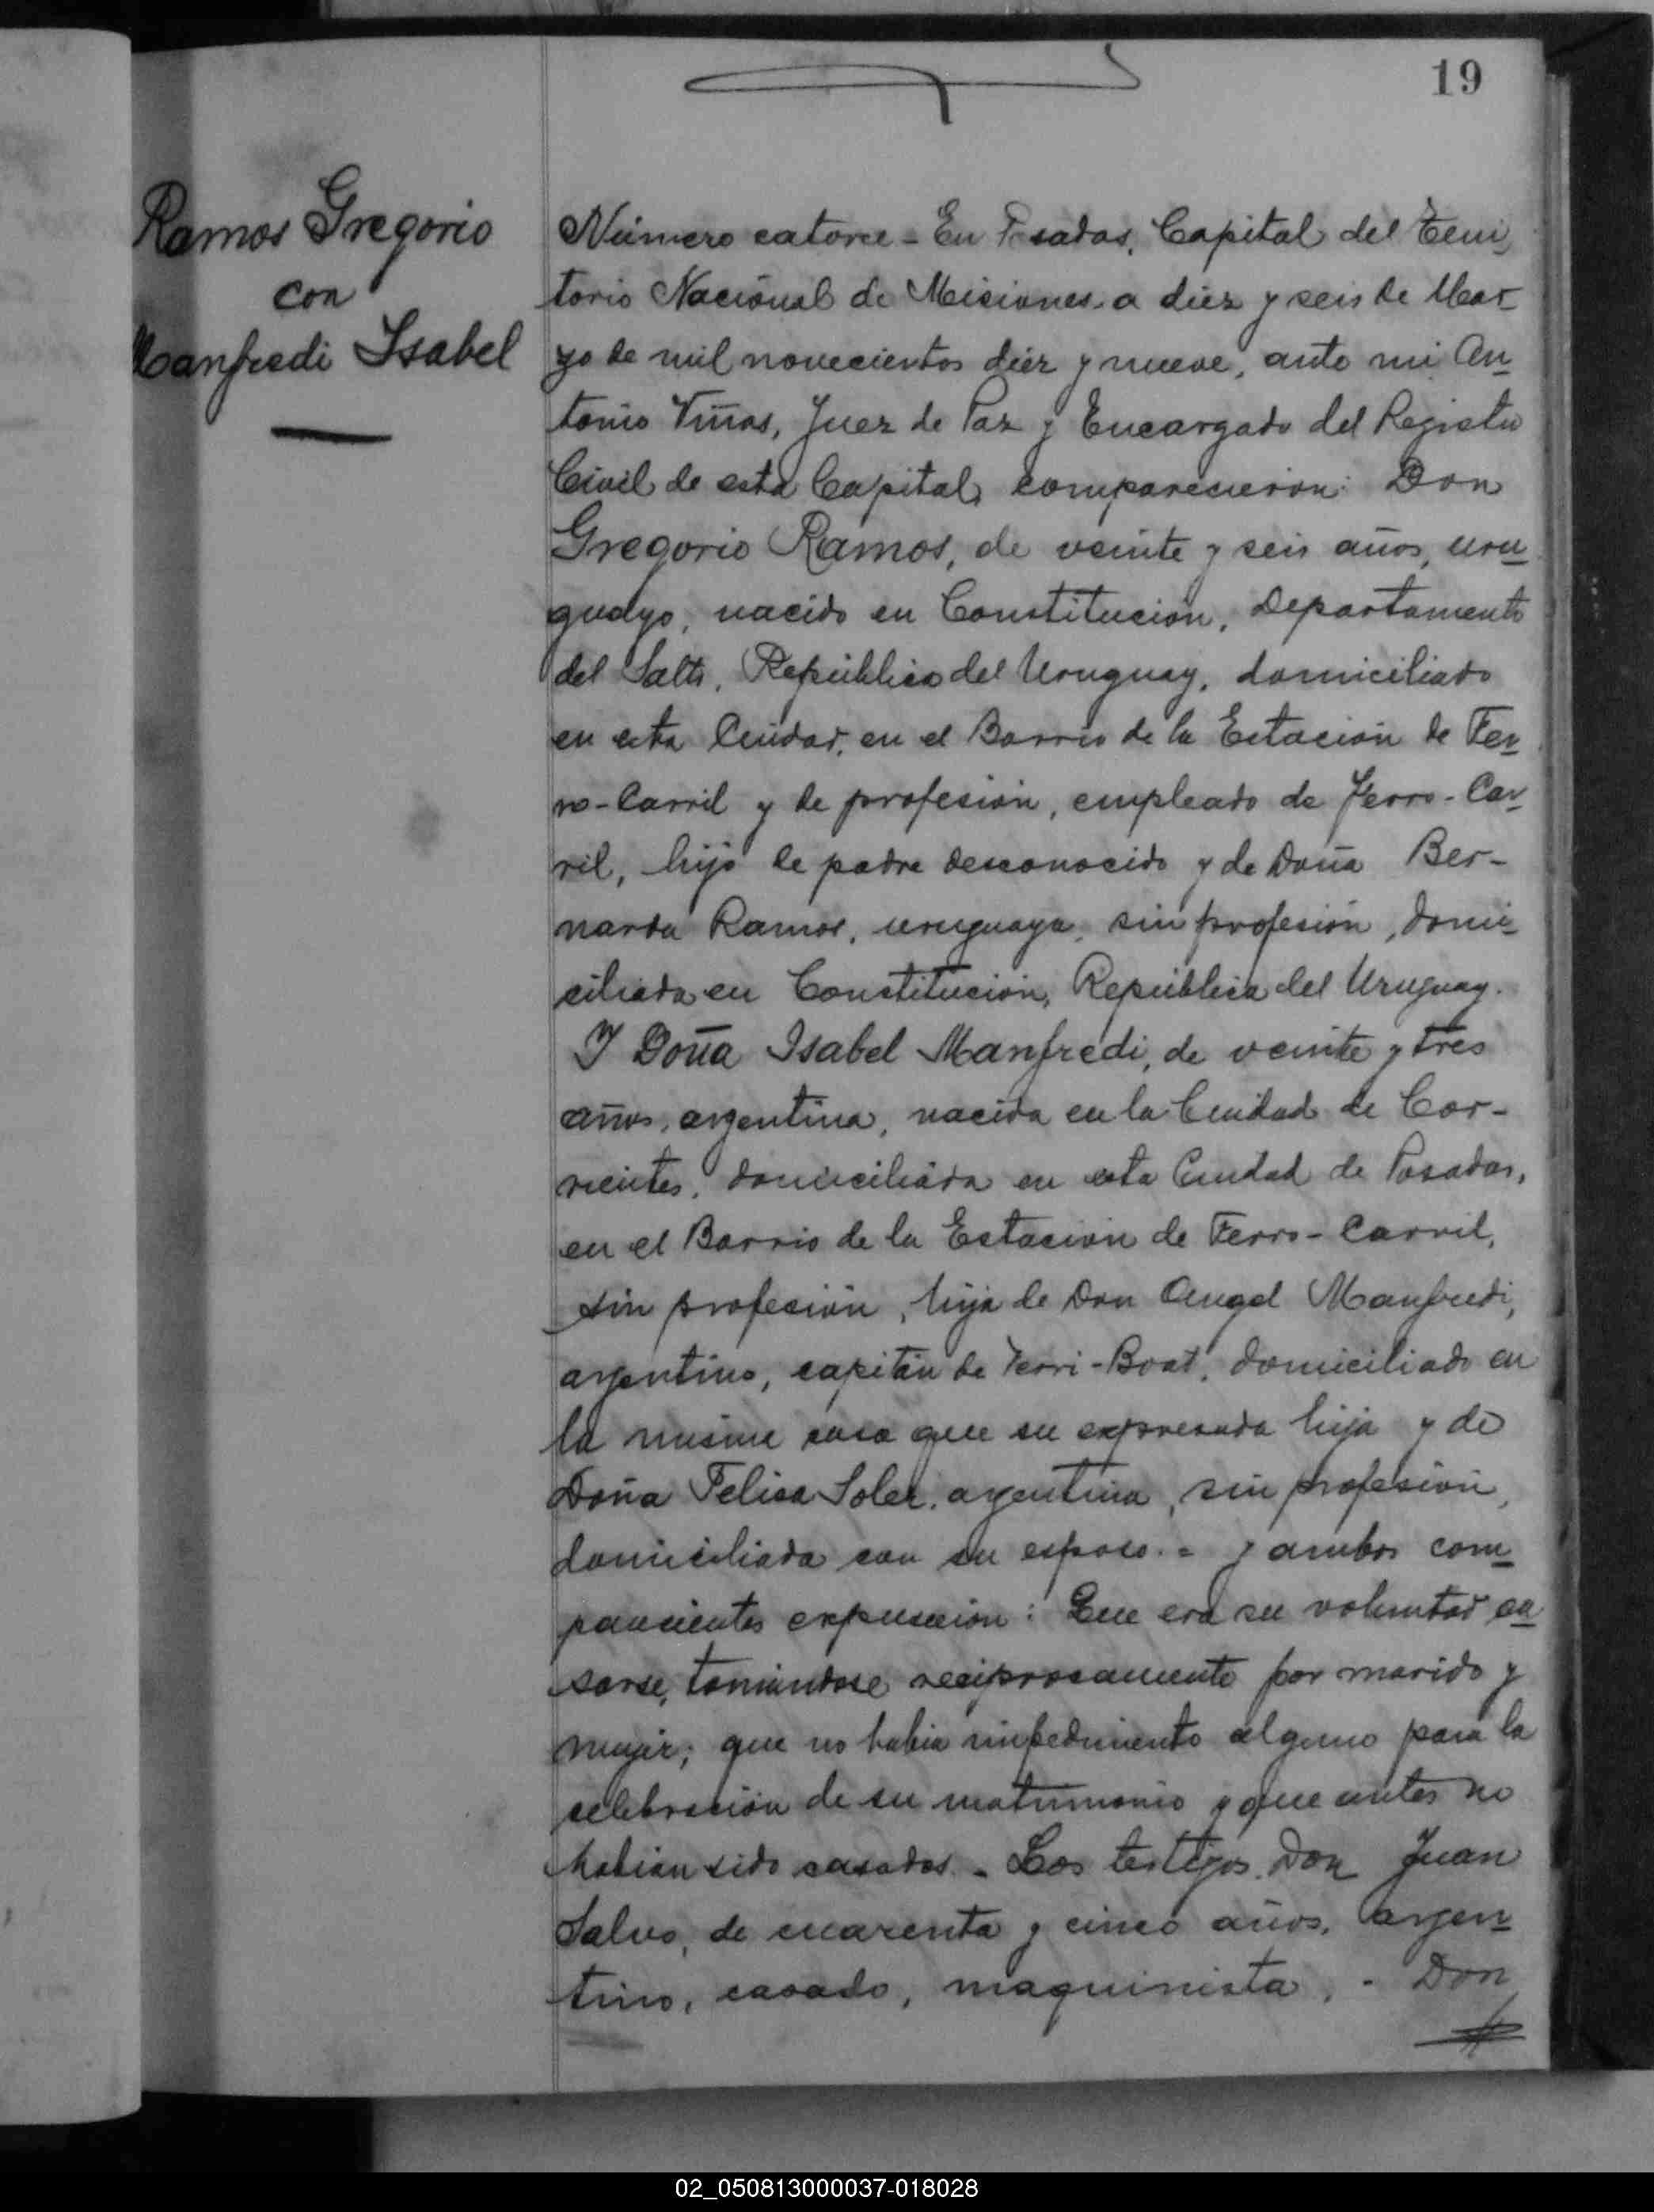 19
Ramos Gregorio
con
Manfredi Isabel
Número catorce - En Posadas, Capital del Terri
torio Nacional de Misiones a diez y seis de Mar
zo de mil novecientos diez y nueve, ante mi An
tonio Viñas, Juez de Paz y Encargado del Registro
Civil de esta Capital, comparecieron: Don
Gregorio Ramos, de veinte y seis años, uru
guayo, nacido en Constitución, Departamento
del Salto, República del Uruguay, domiciliado
en esta Ciudad, en el Barrio de la Estación de Fer
ro-Carril y de profesión, empleado de Ferro-Car
ril, hijo de padre desconocido y de Doña Ber-
narda Ramos, uruguaya, sin profesión, domi
ciliada en Constitución, República del Uruguay.
Y Doña Isabel Manfredi, de veinte y tres
años, argentina, nacida en la Ciudad de Cor-
rientes, domiciliada en esta Ciudad de Posadas,
en el Barrio de la Estación de Ferro-Carril,
sin profesión, hija de Don Angel Manfredi,
argentino, capitán de Ferri-Boat, domiciliado en
la misma casa que su expresada hija y de
Doña Felisa Soler, argentina, sin profesión,
domiciliada con su esposo. = y ambos com
parecientes expusieron: Que era su voluntad ca
sarse, tomándose reciprocamente por marido y
mujer; que no habia impedimento alguno para la
celebración de su matrimonio y que antes no
habian sido casados. - Los testigos Don Juan
Salvo, de cuarenta y cinco años, argen
tino, casado, maquinista, - Don
02_050813000037-018028